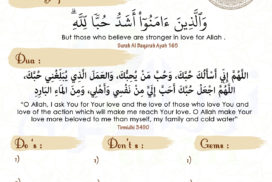 وَالَّذِينَ ءَامَنُوٓا۟ أَشَدُّ حُبًّا لِّلَّهِ ۗ
But those who believe are stronger in love for Allah .
Surah Al Baqarah Ayah 165
Dua :
اللَّهُمَّ إِنِّي أَسْأَلُكَ حُبَّكَ، وَحُبَّ مَنْ يُحِبُّكَ، وَالعَمَلَ الَّذِي يُبَلِّغُنِي حُبَّكَ،
اللَّهُمَّ اجْعَلْ حُبَّكَ أَحَبَّ إِلَيَّ مِنْ نَفْسِي وَأَهْلِي، وَمِنَ المَاءِ البَارِدِ
"O Allah, I ask You for Your love and the love of those who love You and
love of the action which will make me reach Your love. O Allah make Your
love more beloved to me than myself, my family and cold water"
Tirmidhi 3490
Do's : Don't s : Gems :
1) 1) 1)
2) 2) 2)